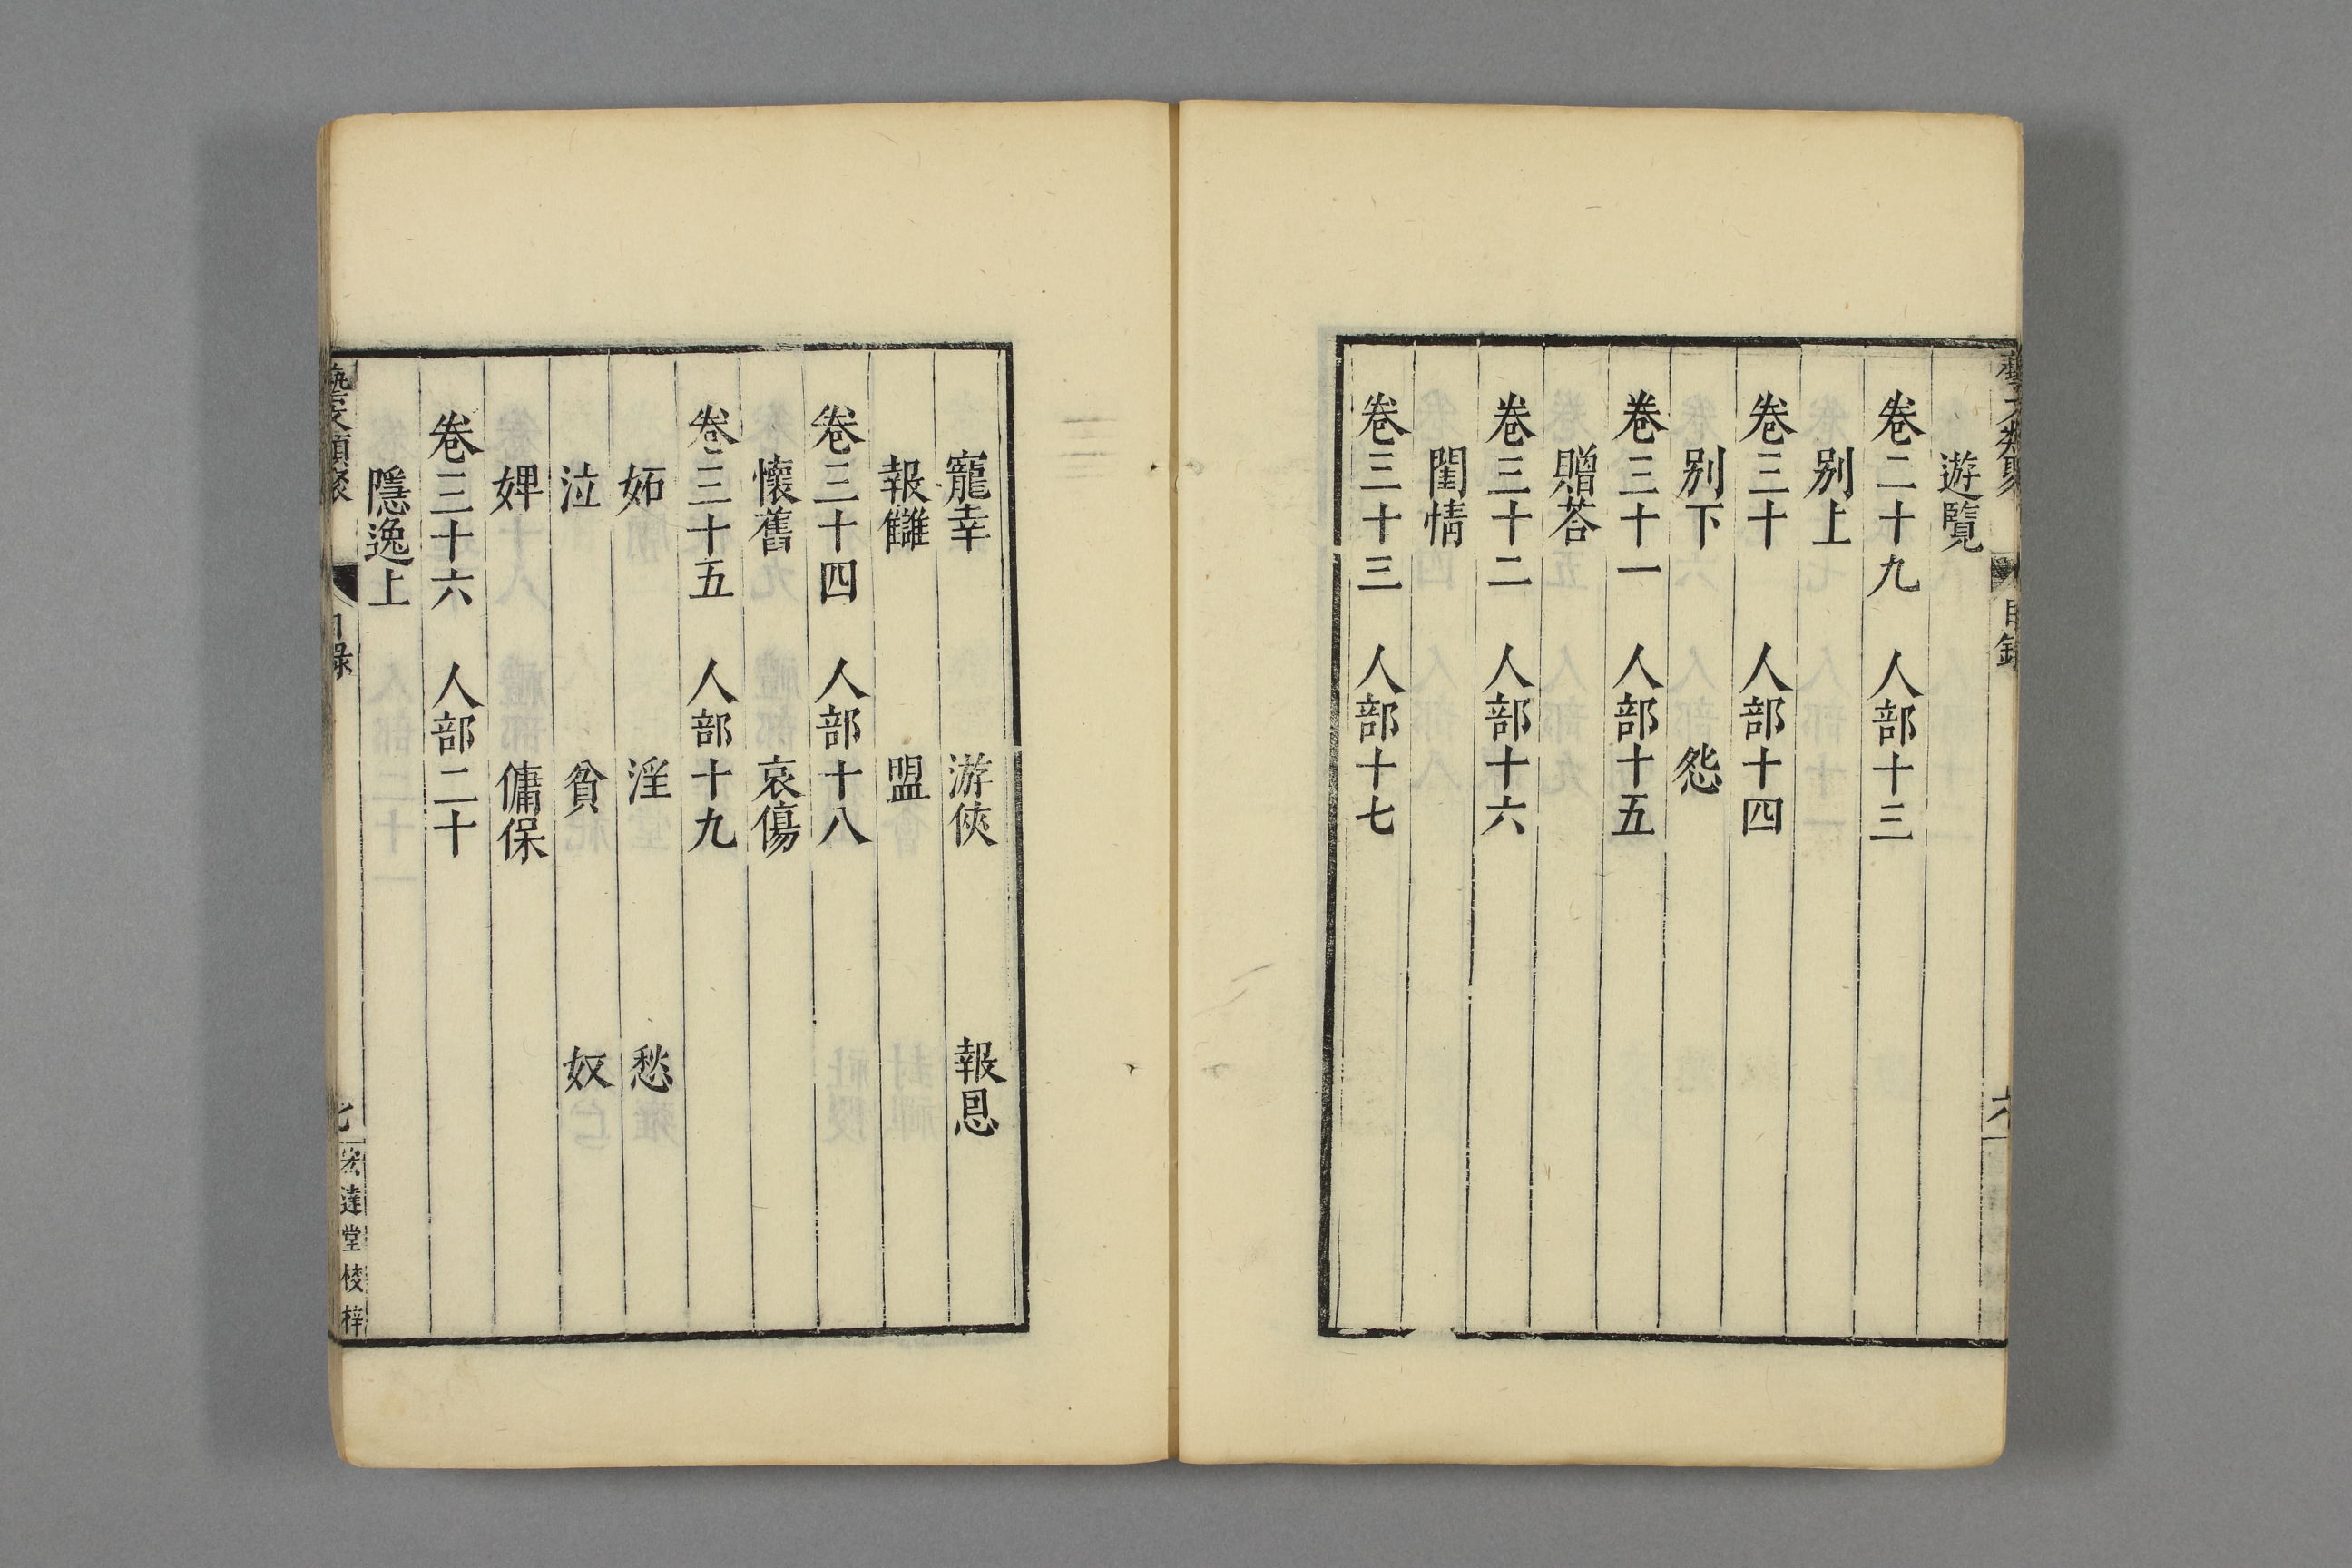 遊覽
卷二十九 人部十三
别上
卷三十 人部十四
别下 怨
卷三十一 人部十五
贈荅
卷三十二 人部十六
閨情
卷三十三 人部十七
寵幸 游俠 報恩
報讎 盟
卷三十四 人部十八
懷舊 哀傷
卷三十五 人部十九
妬 淫 愁
泣 貧 奴
婢 傭保
卷三十六 人部二十
隱逸上
藝文類聚 目録 七 宏達堂校梓